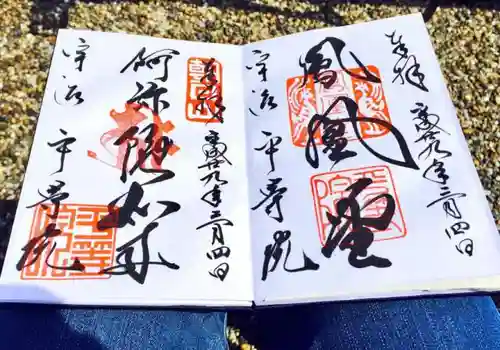 奉拝
平成廿九年二月四日
鳳凰堂
宇治 平等院
奉拝
平成廿九年二月四日
阿弥陀如来
宇治 平等院